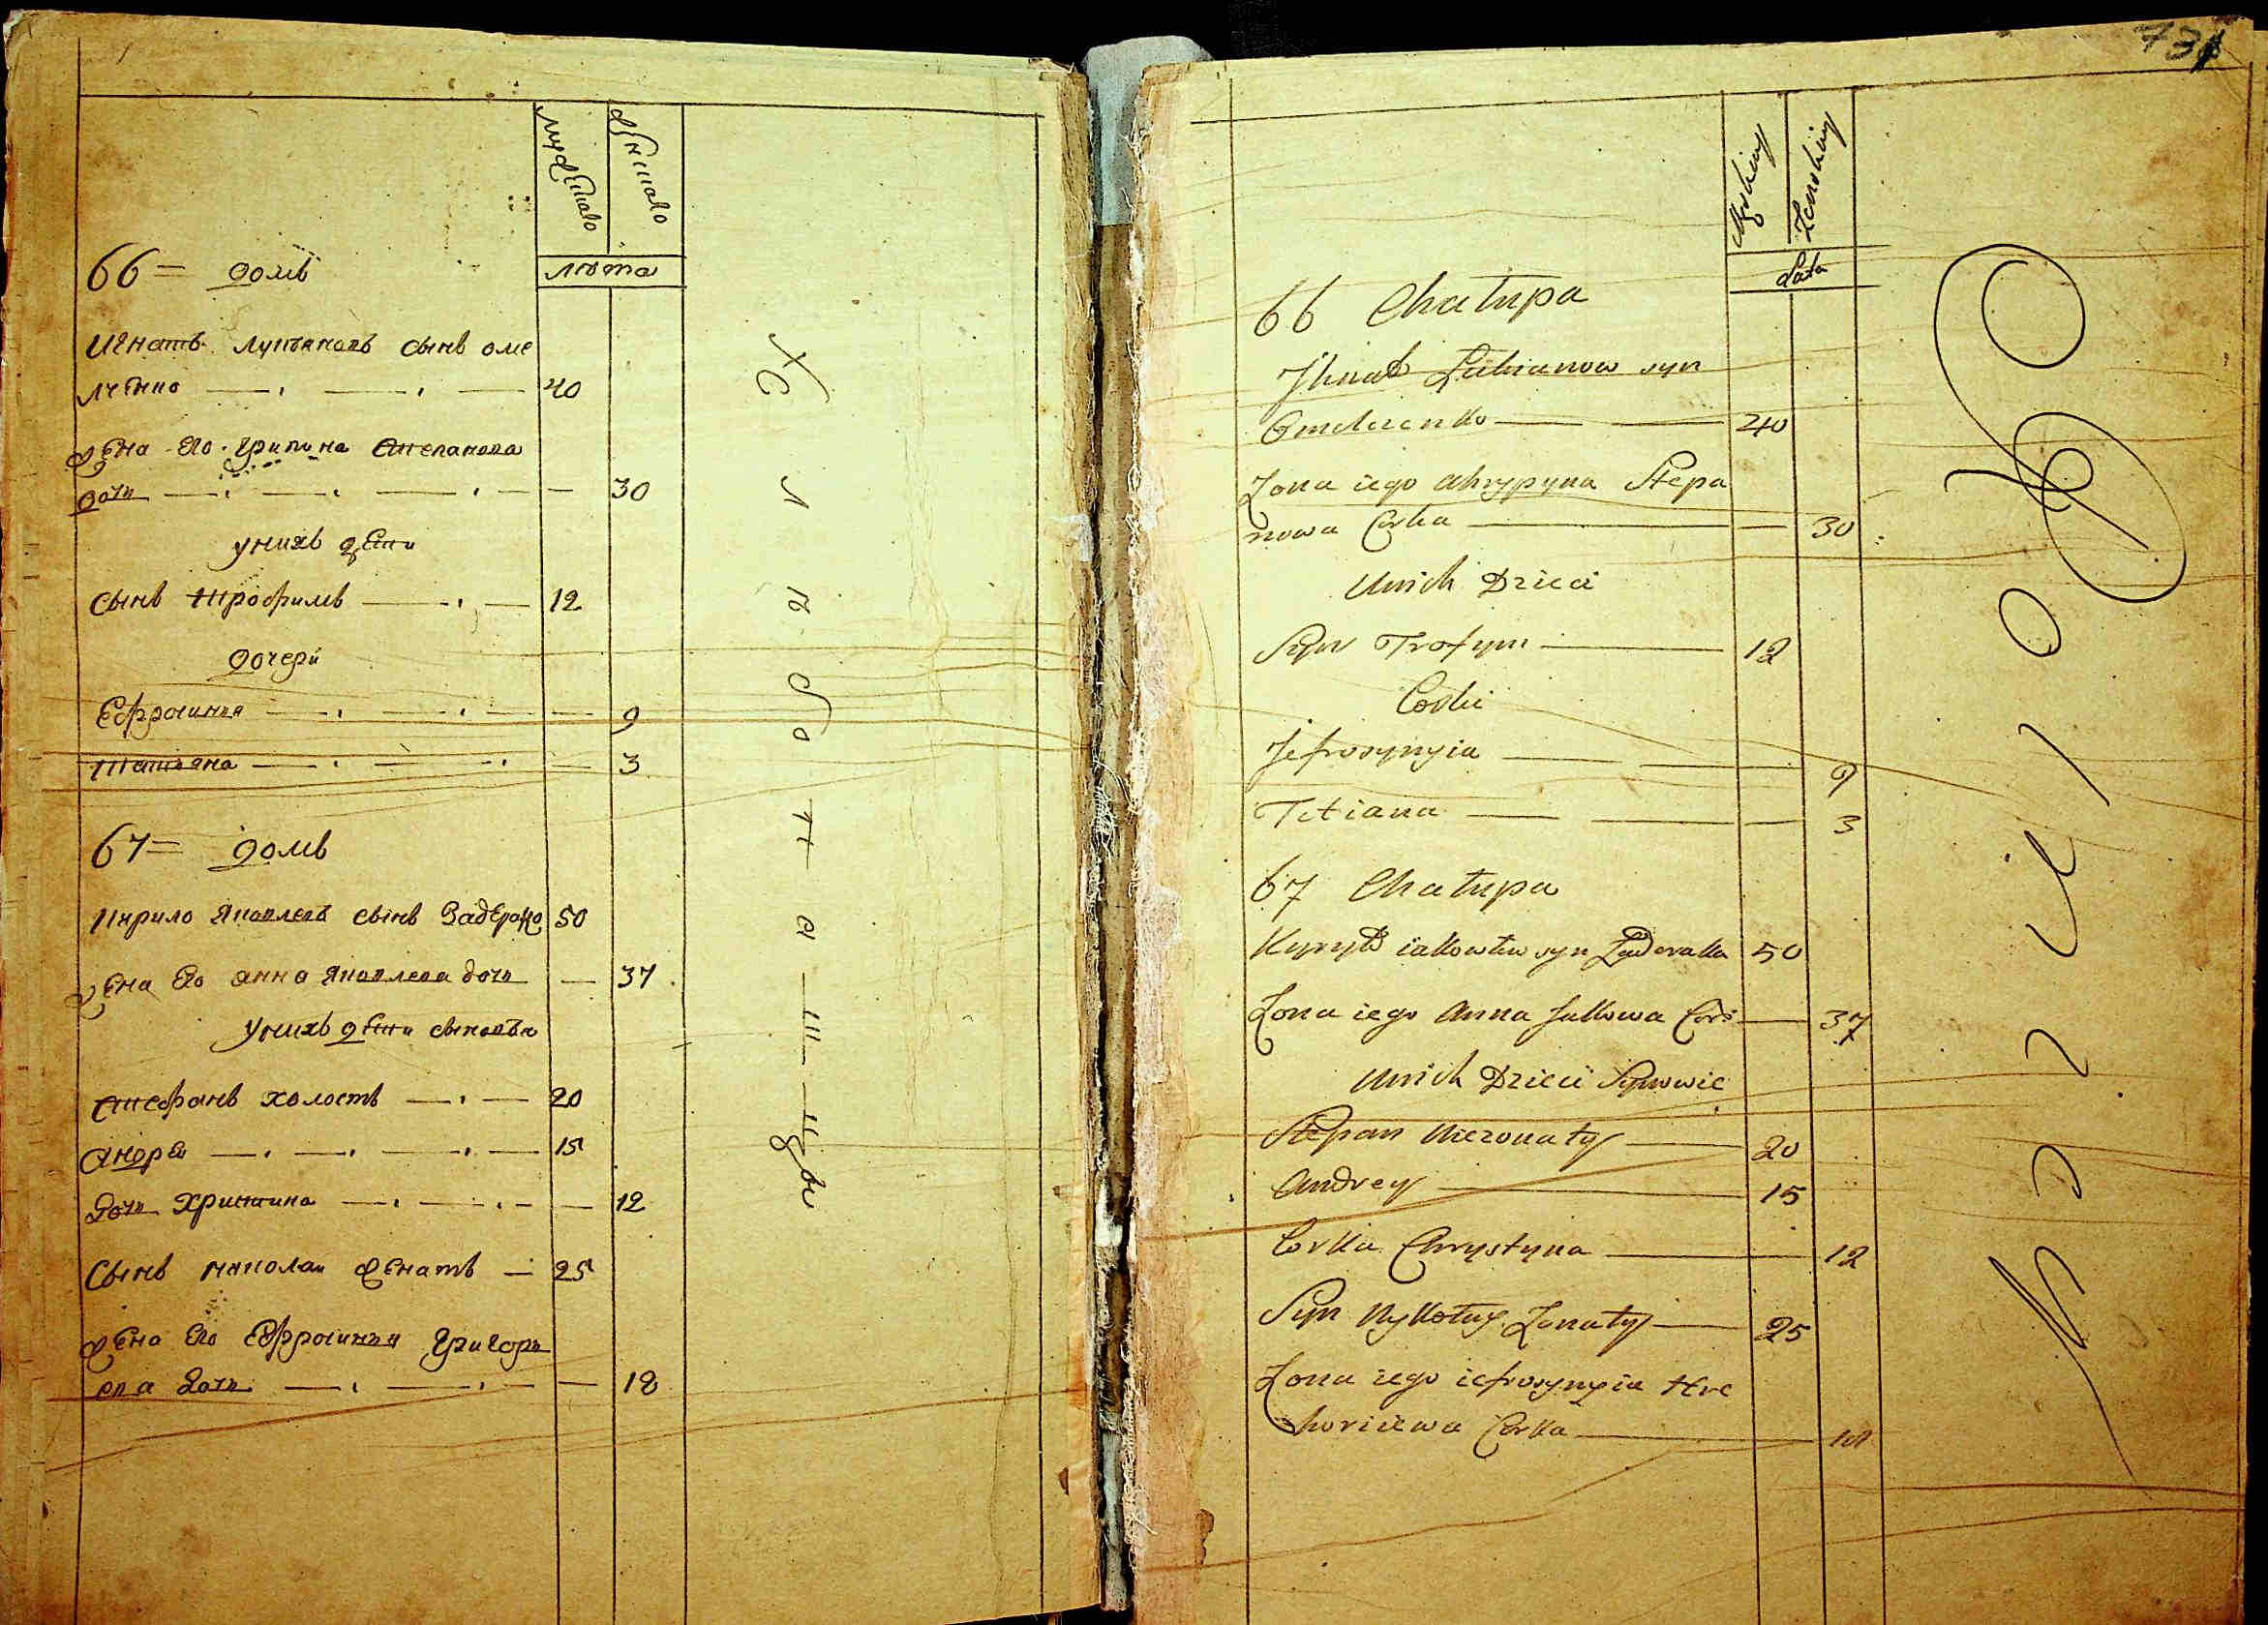 мужеска
женска
лѣта
66 = домъ
Игнатъ Лукьяновъ сынъ Оме
лченко 40
жена его Грипина Степанова
дочь 30
у нихъ дети
сынъ Трофимъ 12
дочери
Ефросинья 9
Татьяна 3
67 = домъ
Кирило Яковлевъ сынъ Задерако 50
жена его Анна Яковлева дочь 37
у нихъ дети сыновья
Стефанъ холостъ 20
Андрей 15
дочь Христина 12
Сынъ Николай женатъ 25
жена его Ефросинья Григорь
ева дочь 18
731
Męskiey
Żenskiey
Lata
66 Chałupa
Jhnat Łukianow syn
Omelczenko 40
Żona iego Ahrypyna Stepa
nowa Corka 30
U nich Dzieci
Syn Trofym 12
Corki
Jefrosynyia 9
Tetiana 3
67 Chałupa
Kyryło iakowlew syn Zaderaka 50
Żona iego Anna Jakowa Cor 37
U nich Dzieci Synowie
Stepan Nieżonaty 20
Andrey 15
Corka Chrystyna 12
Syn Mykołay Żonaty 25
Żona iego iefrosynyia Hre
horiiewa Corka 18